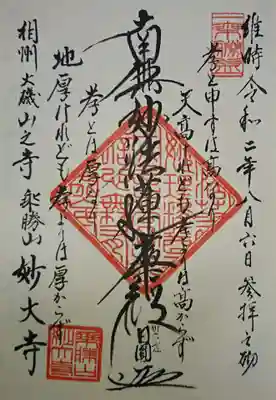 維時 令和二年八月六日 参拝之砌
孝と申すは高なり
天高けれども孝よりは高からず
南無妙法蓮華経 日圓
孝とは厚なり
地厚けれども孝よりは厚からず
相州大磯山之寺 乗勝山 妙大寺